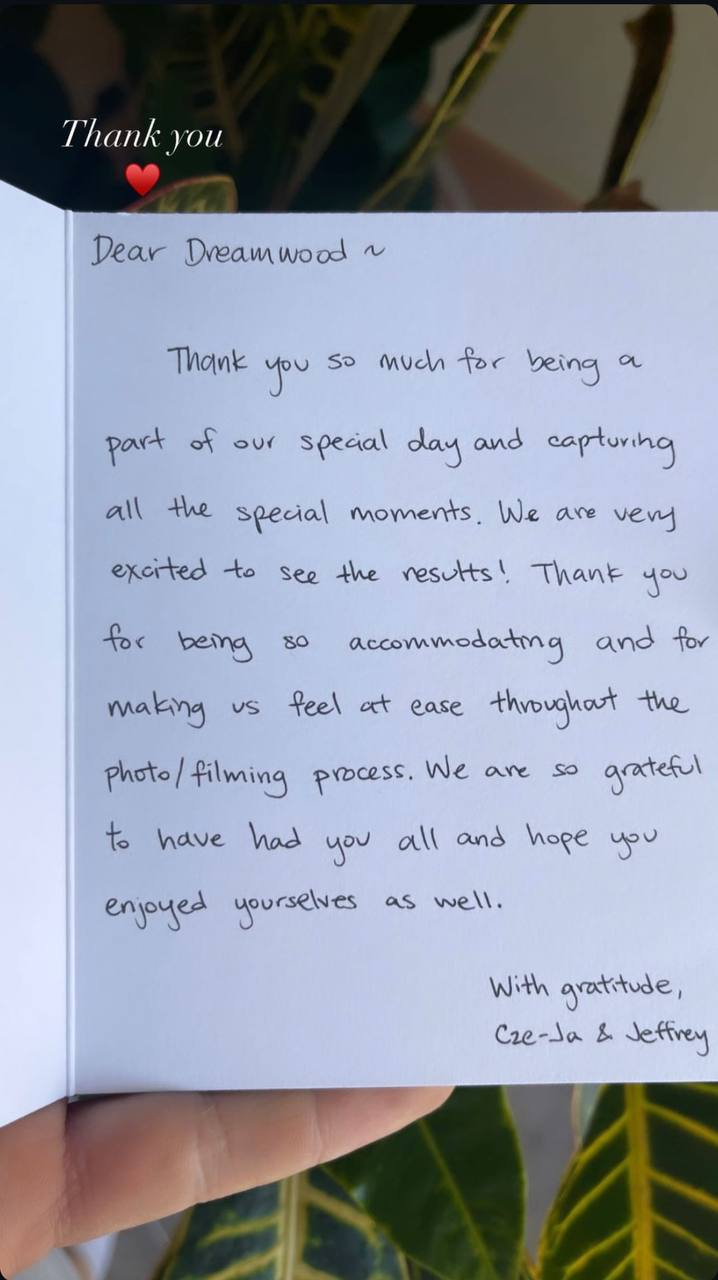 Thank you
❤️
Dear Dreamwood ~
Thank you so much for being a
part of our special day and capturing
all the special moments. We are very
excited to see the results! Thank you
for being so accommodating and for
making us feel at ease throughout the
photo/filming process. We are so grateful
to have had you all and hope you
enjoyed yourselves as well.
With gratitude,
Cze-Ja & Jeffrey